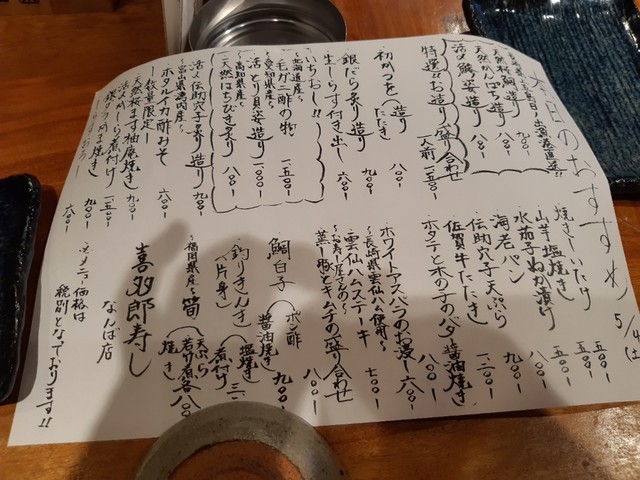 本日のおすすめ 5/4(土)
出漁港直送!!
天然桜鯛造り 九〇〇-
天然かんぱち造り 八〇〇-
活〆鯵姿造り 八〇〇-
特選!!お造り盛り合わせ
一人前 一五〇〇-
初かつを(造り たたき 八〇〇-
銀だら炙り造り 九〇〇-
生しらす付き出し 六〇〇-
いちおし!!
~北海道産~
毛ガニ酢の物 一五〇〇-
~愛知県産~
活とり貝姿造り 一〇〇〇-
~高知県産~
天然はちびき炙り 八〇〇-
活〆伝助穴子炙り造り 九〇〇-
~富山県湾内産~
ホタルイカ酢みそ 六〇〇-
数量限定
天然桜ます柚庵焼き 九〇〇-
煮付け 一五〇〇-
六〇〇-
焼きしいたけ 五〇〇-
山芋塩焼き 五〇〇-
水茄子ぬか漬け 五〇〇-
海老パン 八〇〇-
伝助穴子天ぷら 九〇〇-
佐賀牛たたき 一二〇〇-
ホタテと木の子のバター醤油焼き 八〇〇-
ホワイトアスパラのお浸し 六〇〇-
~長崎県雲仙ハム使用~
雲仙ハムステーキ 七〇〇-
蒸し豚とキムチの盛り合わせ 八〇〇-
鯛白子(ポン酢 醤油焼き 九〇〇-
釣りきんき(片身)(塩焼き 煮付け
~福岡県産~
筍(天ぷら 若竹煮 焼き 各八〇〇-
喜多郎寿し
なんば店
※メニュー価格は
税別となっております!!